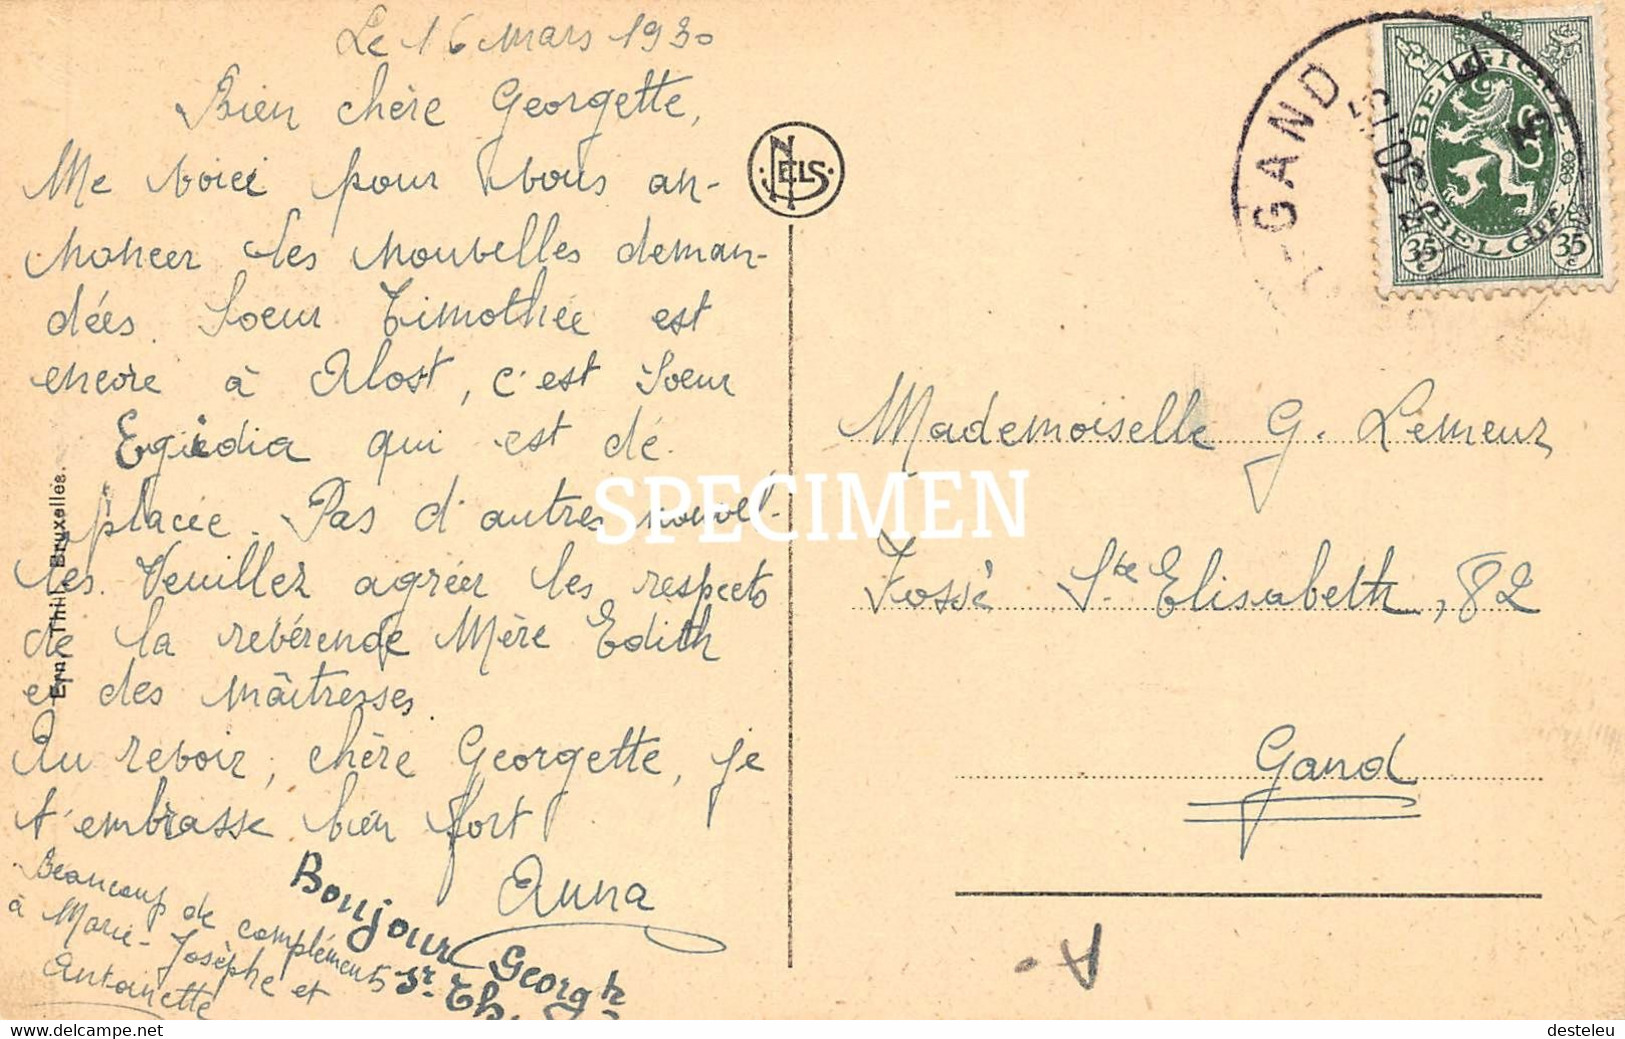 Le 16 mars 1930
Bien chère Georgette,
Me voici pour vous an-
noncer les nouvelles deman-
dées. Soeur Timothée est
encore à Alost, c'est Soeur
Egiedia qui est dé-
placée. Pas d'autres nouvel-
les. Veuillez agréer les respects
de la révérende Mère Edith
et des maîtresses.
Au revoir, chère Georgette, je
t'embrasse bien fort
Anna
Beaucoup de compléments
à Marie-Josèphe et
Antoinette
Bonjour Georgte
Sr. Th.
Ern. Thill, Bruxelles.
NELS
GAND
BELGIQUE
BELGIE
35c
35c
Mademoiselle G. Lemeur
Fossé Ste Elisabeth, 82
Gand
A-
SPECIMEN
Personal use only - Strictly private
desteleu